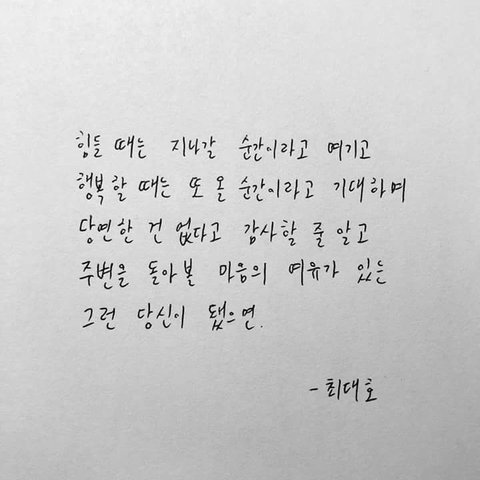 힘들 때는 지나갈 순간이라고 여기고
행복할 때는 또 올 순간이라고 기대하며
당연한 건 없다고 감사할 줄 알고
주변을 돌아볼 마음의 여유가 있는
그런 당신이 됐으면.
- 최대호